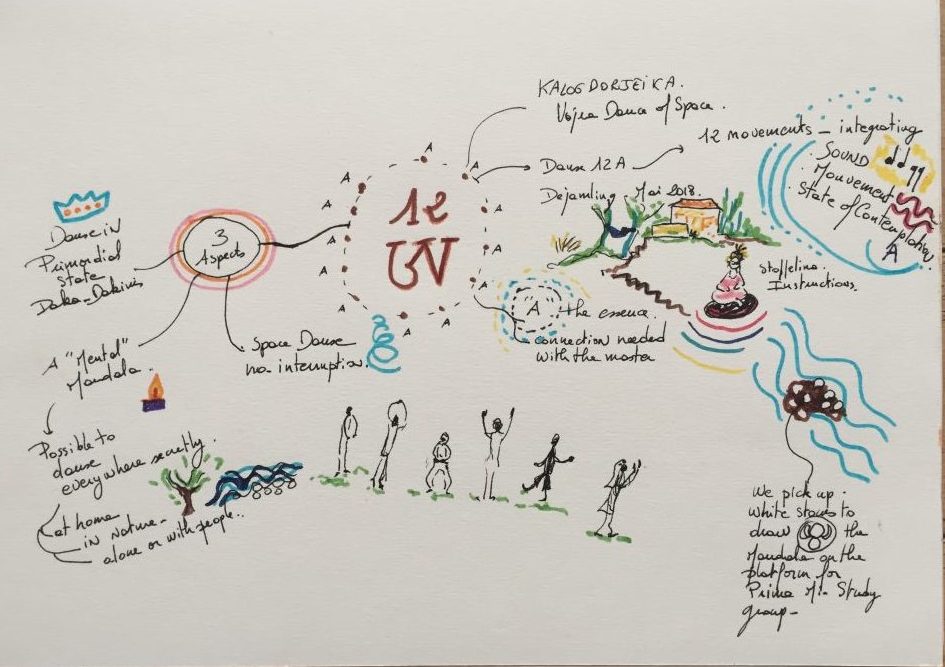 KALOG DORJEI KA.
Vajra Dance of Space.
12 movements - integrating
SOUND
Mouvement
State of Contemplation
A
Danse 12 A
Dejamling - Mai 2018.
12
A
A
A
A
A
A
A
A
A
A
A
A
3
Aspects
Danse in
Primordial
state
Daka-Dakinis
Space Danse
no interruption.
A "Mental"
Mandala.
Possible to
danse
everywhere secretly.
at home
in Nature -
alone or with people..
"A"
the essence.
connection needed
with the master
Stoffelina
Instructions.
We pick up
white stones to
draw the
Mandala on the
platform for
Prima Study
group -